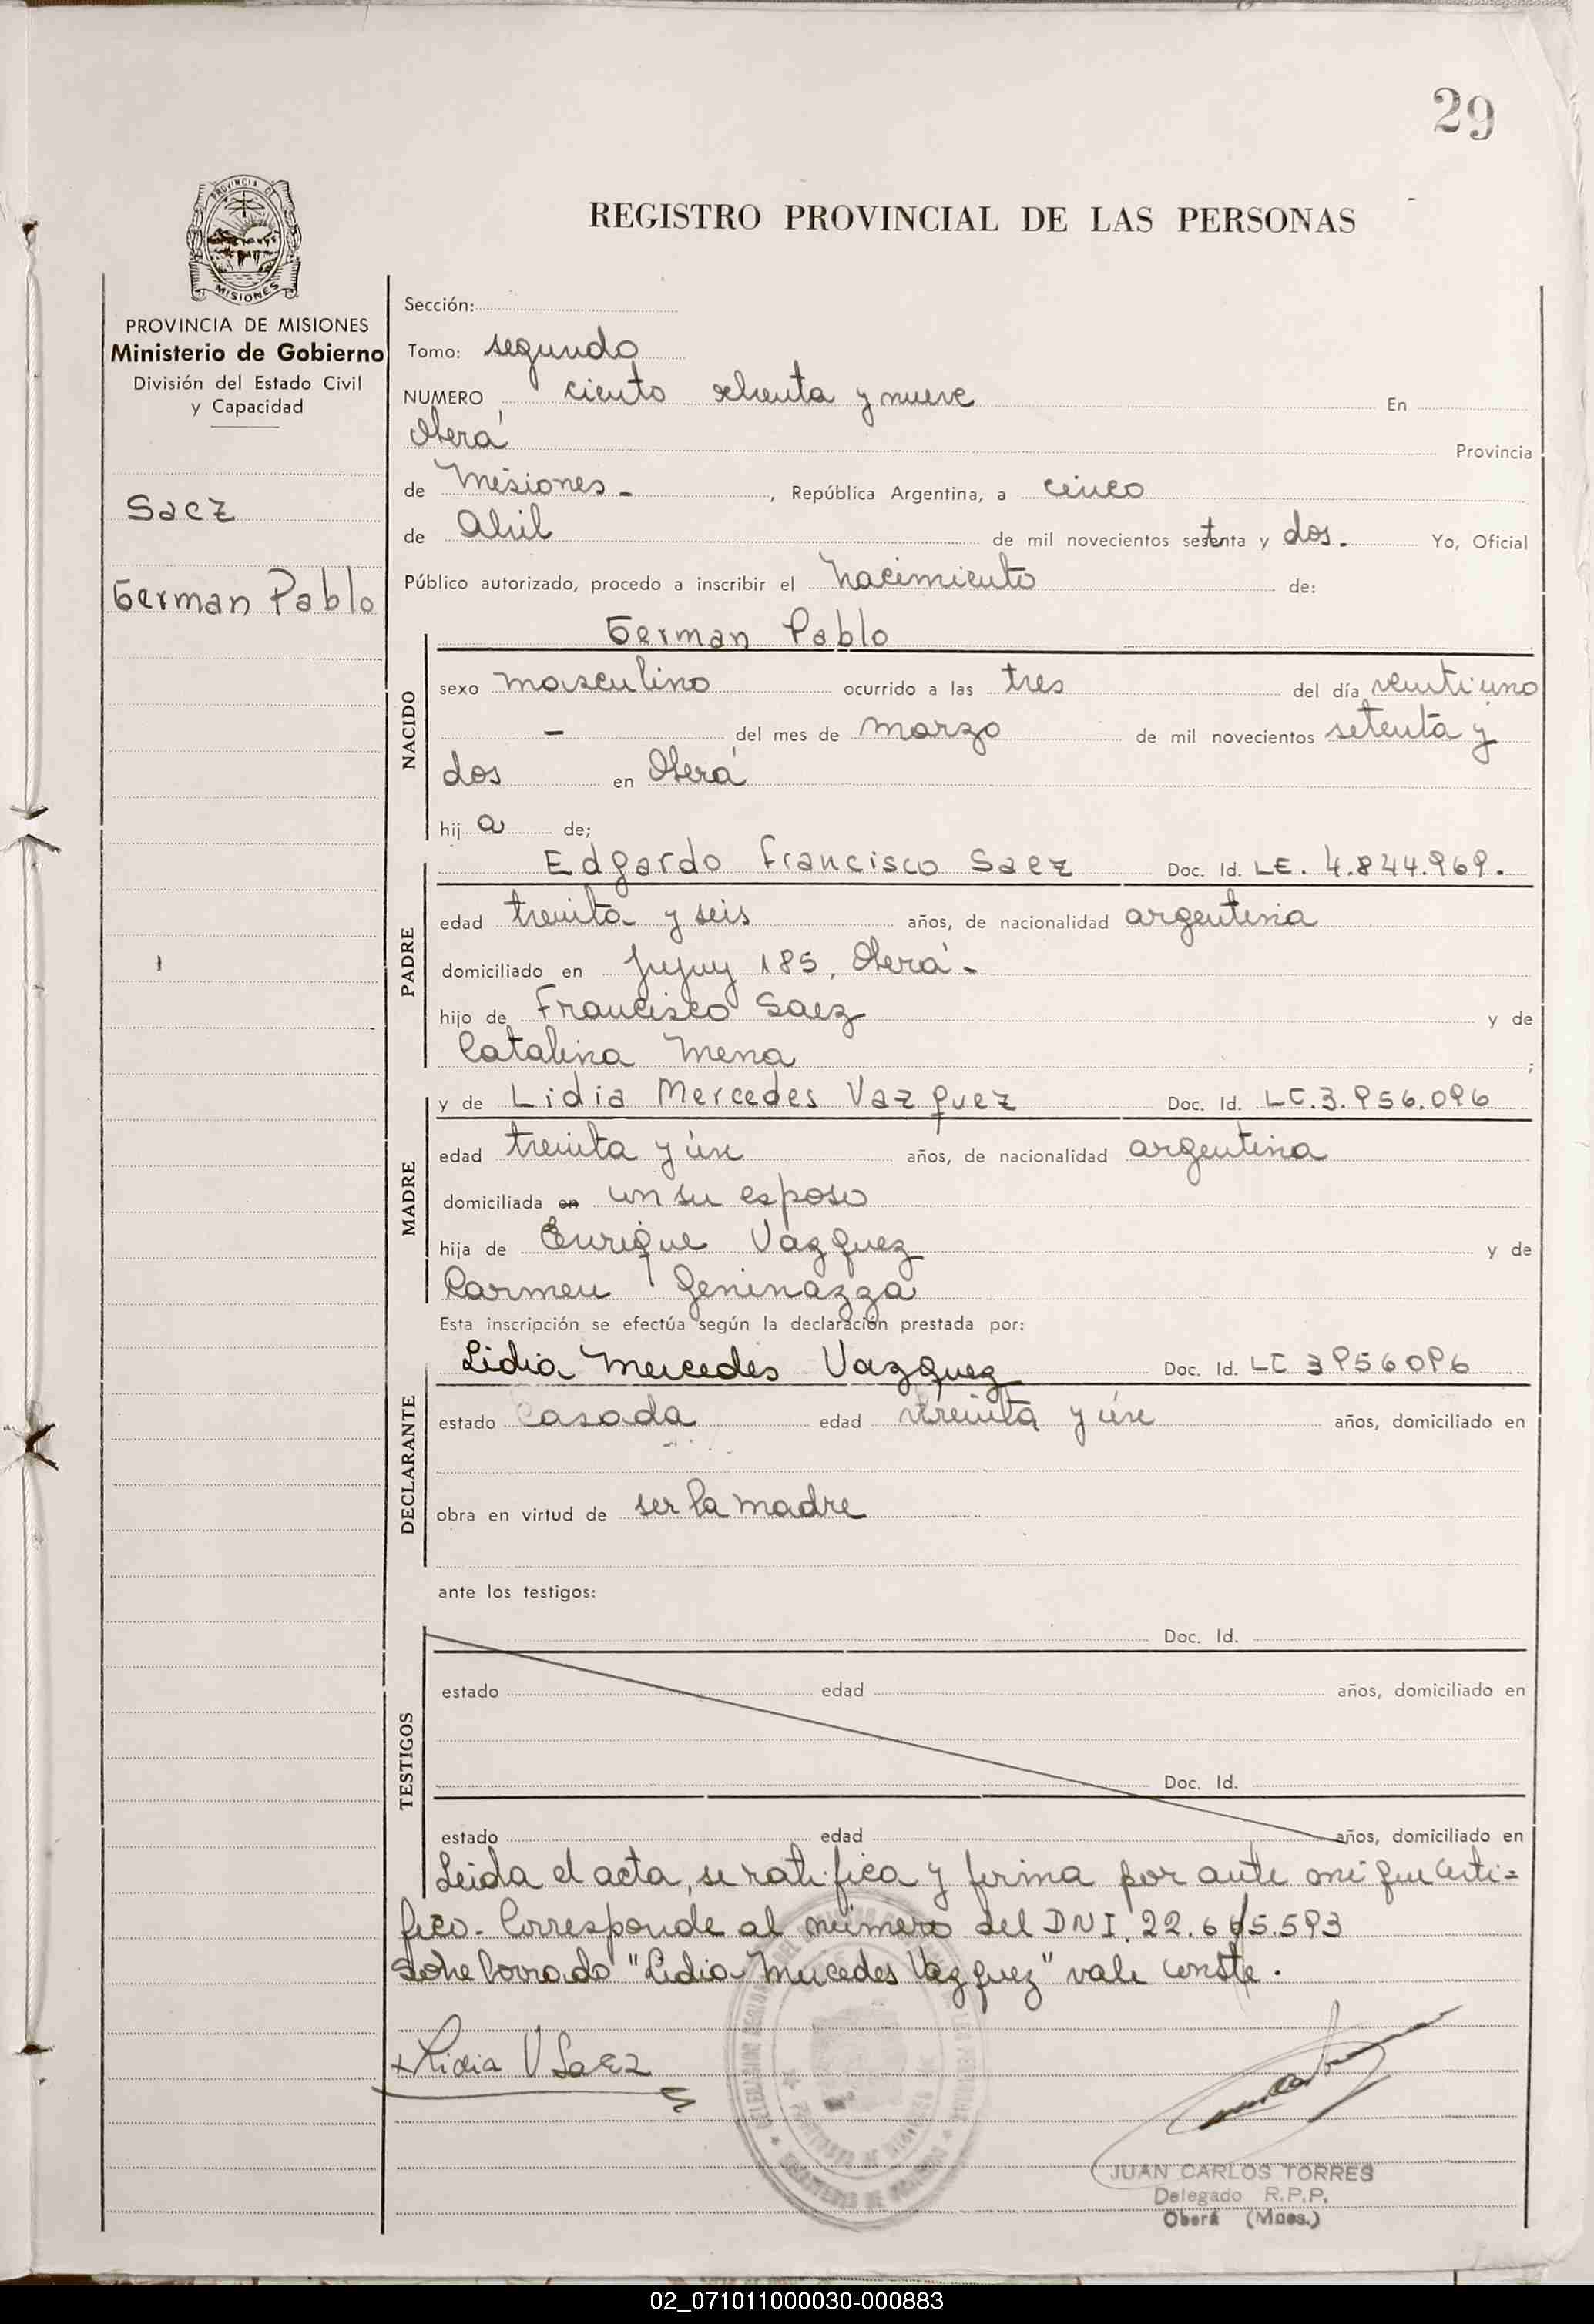 29
PROVINCIA DE
MISIONES
REGISTRO PROVINCIAL DE LAS PERSONAS
PROVINCIA DE MISIONES
Ministerio de Gobierno
División del Estado Civil
y Capacidad
Saez
German Pablo
Sección:
Tomo: segundo
NUMERO ciento ochenta y nueve En
Oberá Provincia
de Misiones - , República Argentina, a cinco
de Abril de mil novecientos setenta y dos. Yo, Oficial
Público autorizado, procedo a inscribir el nacimiento de:
NACIDO
German Pablo
sexo masculino ocurrido a las tres del día veintiuno
- del mes de marzo de mil novecientos setenta y
dos en Oberá
hij o de;
PADRE
Edgardo Francisco Saez Doc. Id. LE. 4.844.969.
edad treinta y seis años, de nacionalidad argentina
domiciliado en Jujuy 185, Oberá -
hijo de Francisco Saez y de
Catalina Mena ;
MADRE
y de Lidia Mercedes Vazquez Doc. Id. LC.3.956.096
edad treinta y un años, de nacionalidad argentina
domiciliada en con su esposo
hija de Enrique Vazquez y de
Carmen Geninazza
Esta inscripción se efectúa según la declaración prestada por:
DECLARANTE
Lidia Mercedes Vazquez Doc. Id. LC 3956096
estado casada edad treinta y un años, domiciliado en
obra en virtud de ser la madre
ante los testigos:
TESTIGOS
Doc. Id.
estado edad años, domiciliado en
Doc. Id.
estado edad años, domiciliado en
Leida el acta, se ratifica y firma por ante mi que certi=
fico. Corresponde al número del DNI. 22.665.593
Sobre borrado "Lidia Mercedes Vazquez" vale conste.
Lidia V Saez
JUAN CARLOS TORRES
Delegado R.P.P.
Oberá (Mnes.)
02_071011000030-000883